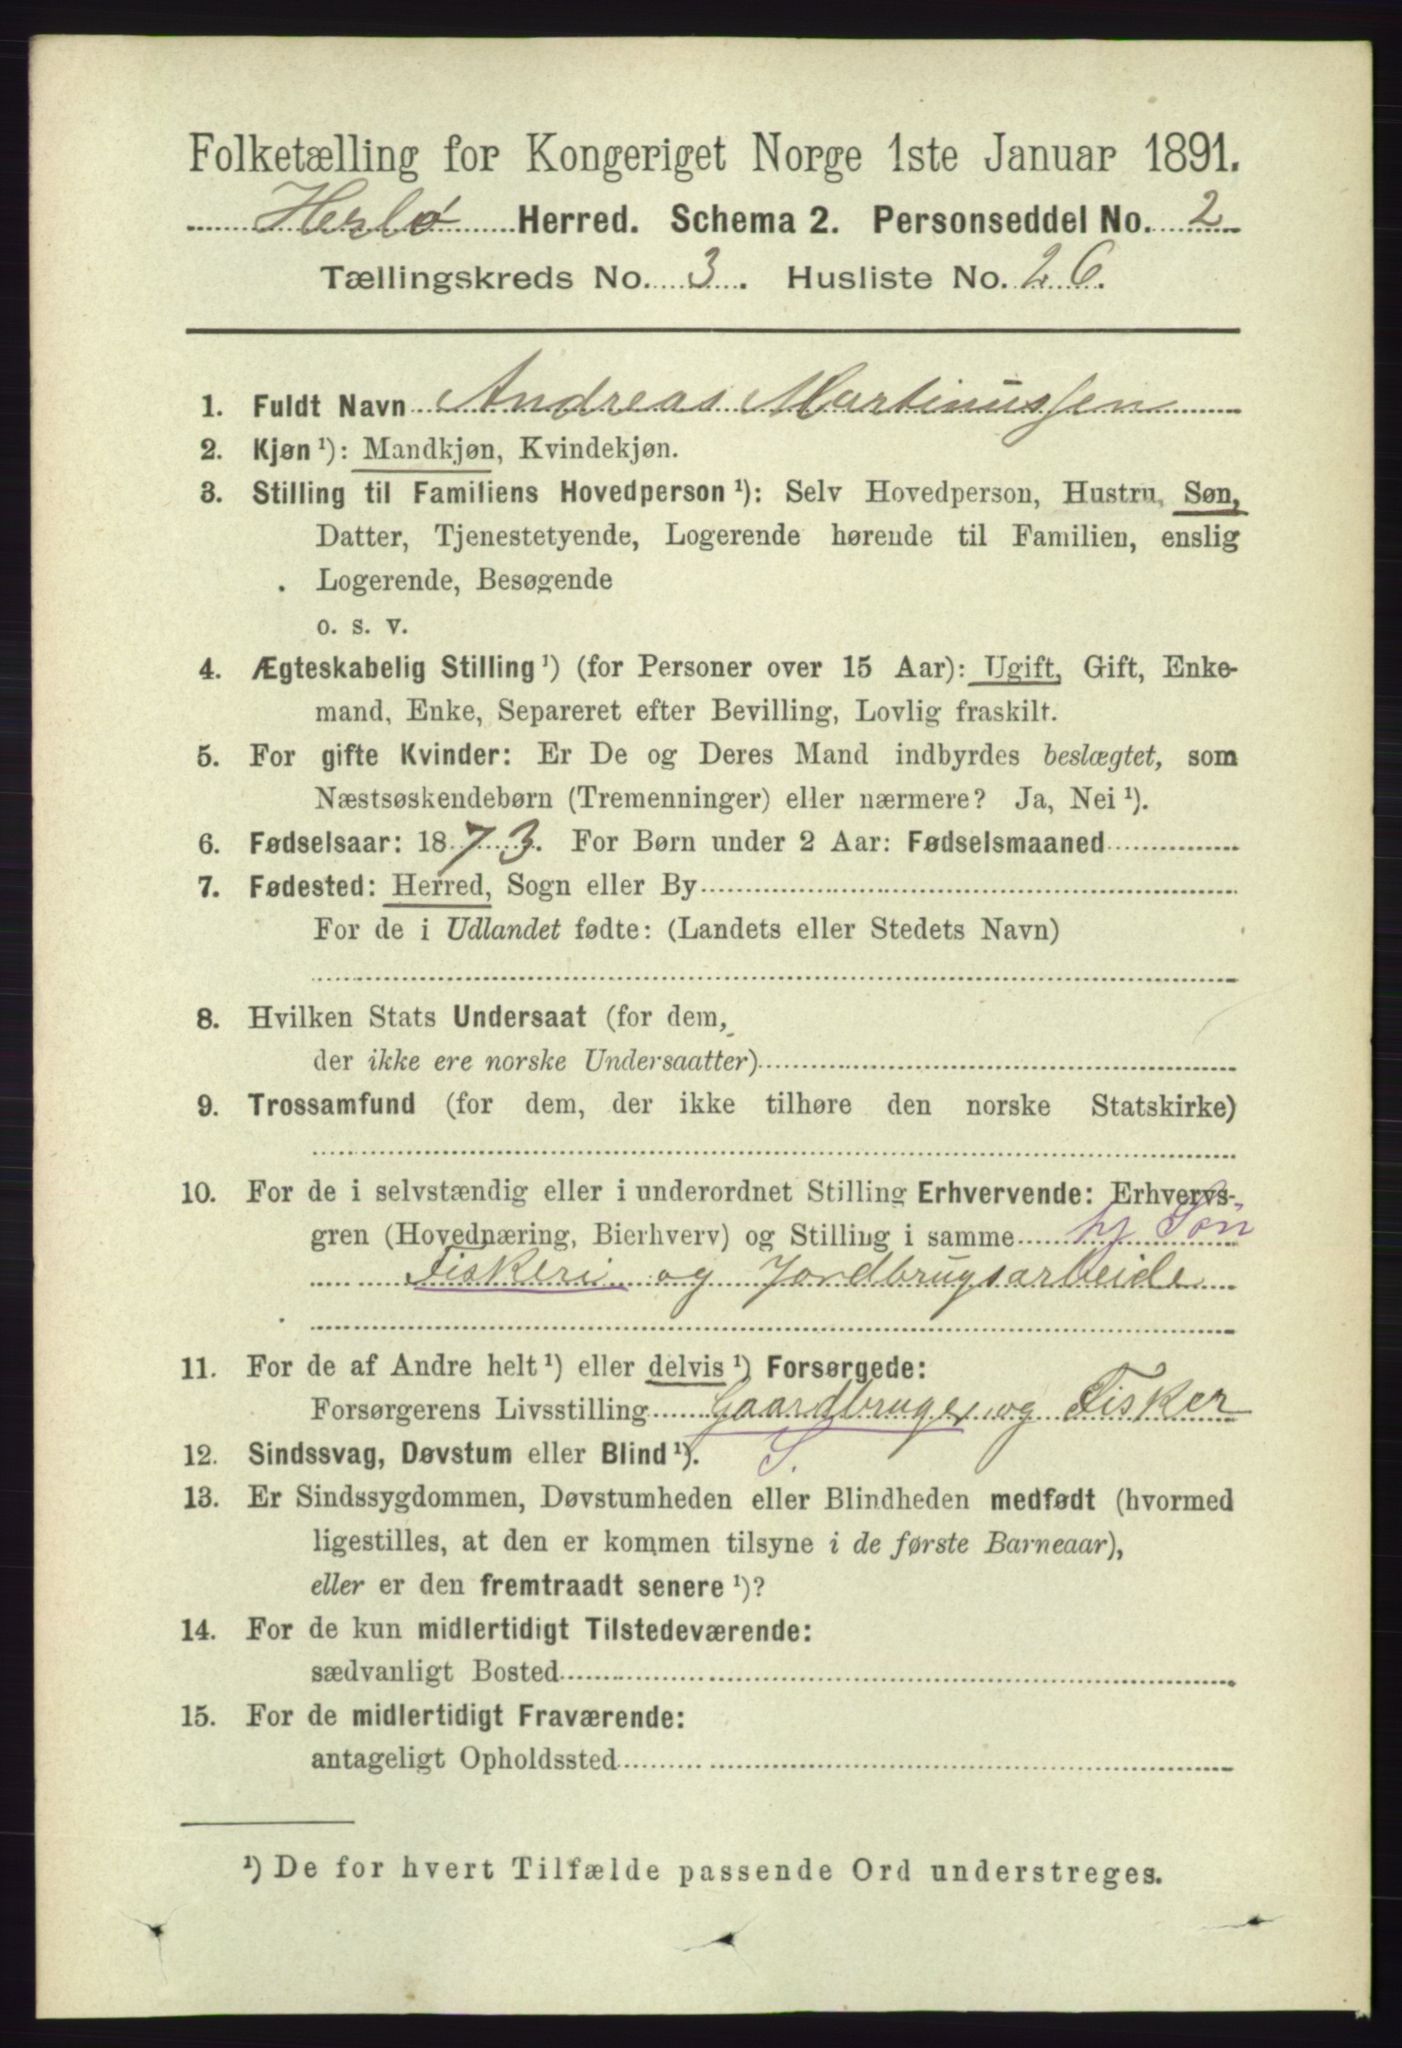 Folketælling for Kongeriget Norge 1ste Januar 1891.
Herlø Herred. Schema 2. Personseddel No. 2
Tællingskreds No. 3. Husliste No. 26.
1. Fuldt Navn Andreas Martinussen
2. Kjøn ¹): Mandkjøn, Kvindekjøn.
3. Stilling til Familiens Hovedperson ¹): Selv Hovedperson, Hustru, Søn,
Datter, Tjenestetyende, Logerende hørende til Familien, enslig
Logerende, Besøgende
o. s. v.
4. Ægteskabelig Stilling ¹) (for Personer over 15 Aar): Ugift, Gift, Enke-
mand, Enke, Separeret efter Bevilling, Lovlig fraskilt.
5. For gifte Kvinder: Er De og Deres Mand indbyrdes beslægtet, som
Næstsøskendebørn (Tremenninger) eller nærmere? Ja, Nei ¹).
6. Fødselsaar: 1873. For Børn under 2 Aar: Fødselsmaaned
7. Fødested: Herred, Sogn eller By
For de i Udlandet fødte: (Landets eller Stedets Navn)
8. Hvilken Stats Undersaat (for dem,
der ikke ere norske Undersaatter)
9. Trossamfund (for dem, der ikke tilhøre den norske Statskirke)
10. For de i selvstændig eller i underordnet Stilling Erhvervende: Erhvervs-
gren (Hovednæring, Bierhverv) og Stilling i samme hj Søn
Fiskeri og Jordbrugsarbeide
11. For de af Andre helt ¹) eller delvis ¹) Forsørgede:
Forsørgerens Livsstilling Gaardbruger og Fisker
12. Sindssvag, Døvstum eller Blind ¹). S.
13. Er Sindssygdommen, Døvstumheden eller Blindheden medfødt (hvormed
ligestilles, at den er kommen tilsyne i de første Barneaar),
eller er den fremtraadt senere ¹)?
14. For de kun midlertidigt Tilstedeværende:
sædvanligt Bosted
15. For de midlertidigt Fraværende:
antageligt Opholdssted
¹) De for hvert Tilfælde passende Ord understreges.